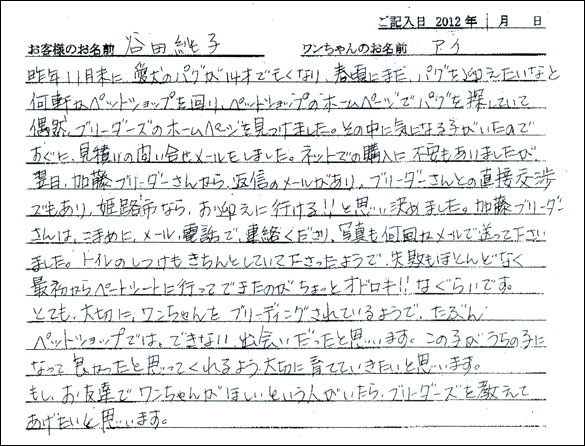 ご記入日 2012年 1月 日
お客様のお名前 谷田 純子 ワンちゃんのお名前 アイ
昨年11月末に、愛犬のパグが14才で亡くなり、春頃にまた、パグを迎えたいなと
何軒かペットショップを回り、ペットショップのホームページでパグを探していて
偶然、ブリーダーズのホームページを見つけました。その中に気になる子がいたので
すぐに、見積りの問い合せメールをしました。ネットでの購入に不安もありましたが
翌日、加藤ブリーダーさんから、返信のメールがあり、ブリーダーさんとの直接交渉
でもあり、姫路市なら、お迎えに行ける!!と思い決めました。加藤ブリーダー
さんは、こまめに、メール、電話で、連絡くださり、写真も何回かメールで送って下さい
ました。トイレのしつけもきちんとしていて下さったようで、失敗もほとんどなく
最初からペートシートに行ってできたのがちょっとオドロキ!!なぐらいです。
とても、大切に、ワンちゃんを ブリーディングされているようで、たぶん
ペットショップでは、できない 出会いだったと思います。この子がうちの子に
なって良かったと思ってくれるよう、大切に育てていきたいと思います。
もし、お友達で ワンちゃんがほしいという人がいたら、ブリーダーズを教えて
あげたいと思います。